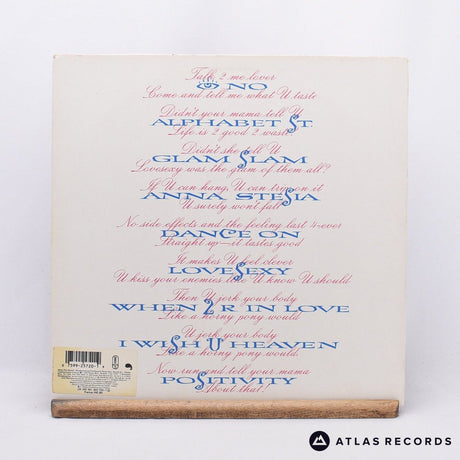 Talk 2 me lover
NO
Come and tell me what U taste
Didn't your mama tell U
ALPHABET ST.
Life is 2 good 2 waste
Didn't she tell U
GLAM SLAM
Lovesexy was the glam of them all?
If U can hang U can trip on it
ANNA STESIA
U surely won't fall
No side effects and the feeling last 4-ever
DANCE ON
Straight up—it tastes good
It makes U feel clever
LOVESEXY
U kiss your enemies like U know U should
Then U jerk your body
WHEN 2 R IN LOVE
Like a horny pony would
U jerk your body
I WISH U HEAVEN
Like a horny pony would
Now run and tell your mama
POSITIVITY
About that!
0 7599-25720-1
ATLAS RECORDS